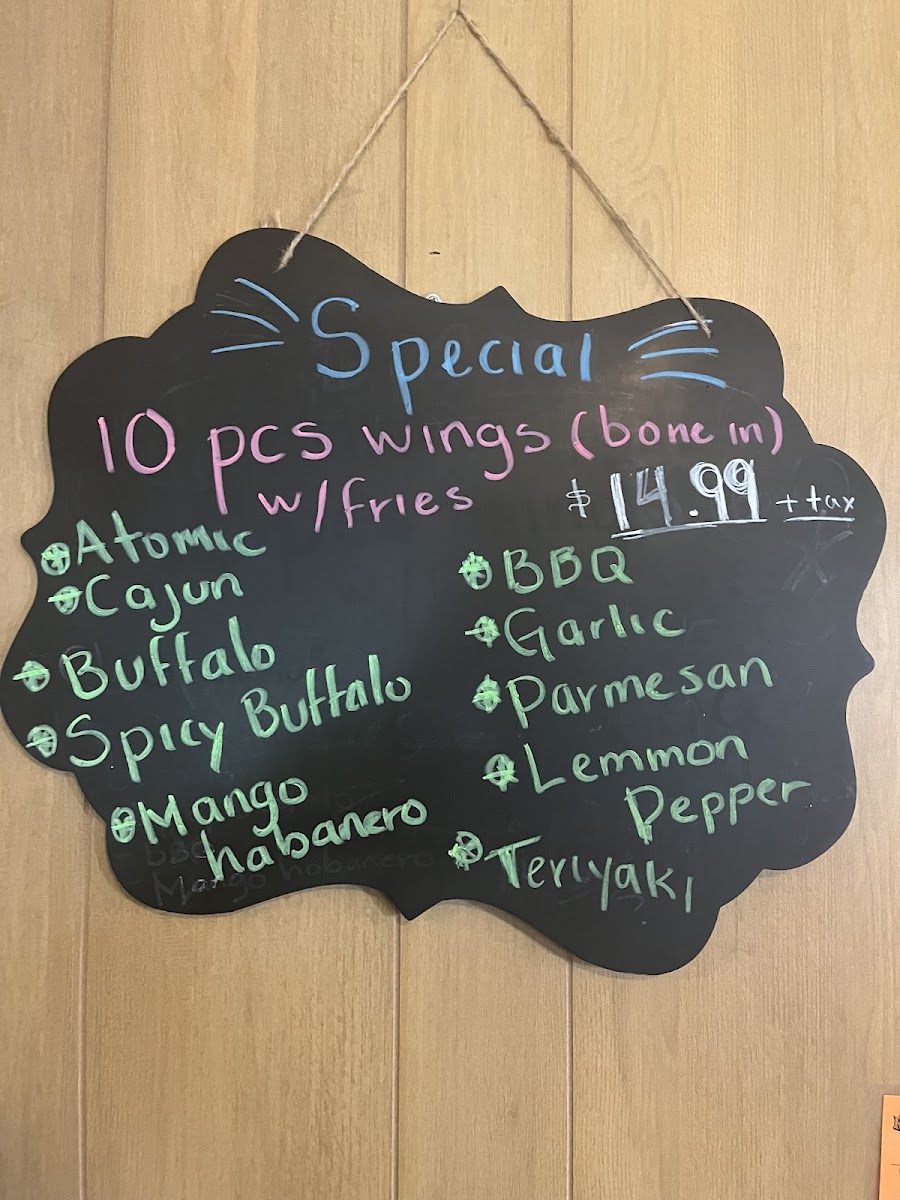 Special
10 pcs wings (bone in)
w/fries $14.99 + tax
Atomic
Cajun
Buffalo
Spicy Buffalo
Mango
habanero
BBQ
Garlic
Parmesan
Lemmon
Pepper
Teriyaki
BBQ
Mango habanero